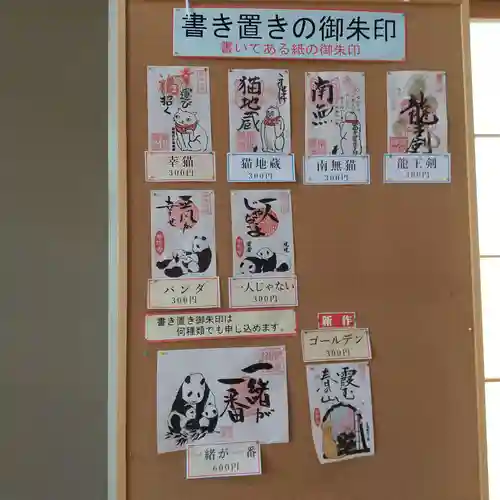 書き置きの御朱印
書いてある紙の御朱印
幸運び
福招く
幸猫
300円
猫地蔵
猫地蔵
300円
南無
南無猫
300円
龍王剣
龍王剣
300円
パンダ
300円
一人
じゃないよ
一人じゃない
300円
書き置き御朱印は
何種類でも申し込めます。
一緒が
一番
一緒が一番
600円
新作
ゴールデン
300円
霞む
春山